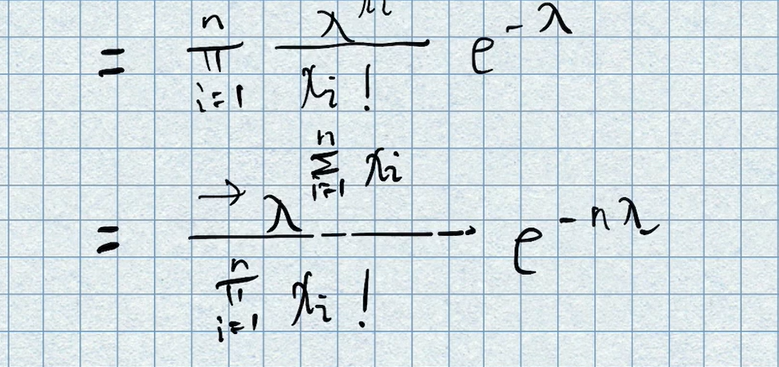 = ∏_{i=1}^{n} \frac{λ^{xi}}{x_i !} e^{-λ}
= \frac{→ λ^{∑_{i=1}^{n} x_i}}{∏_{i=1}^{n} x_i !} e^{-nλ}